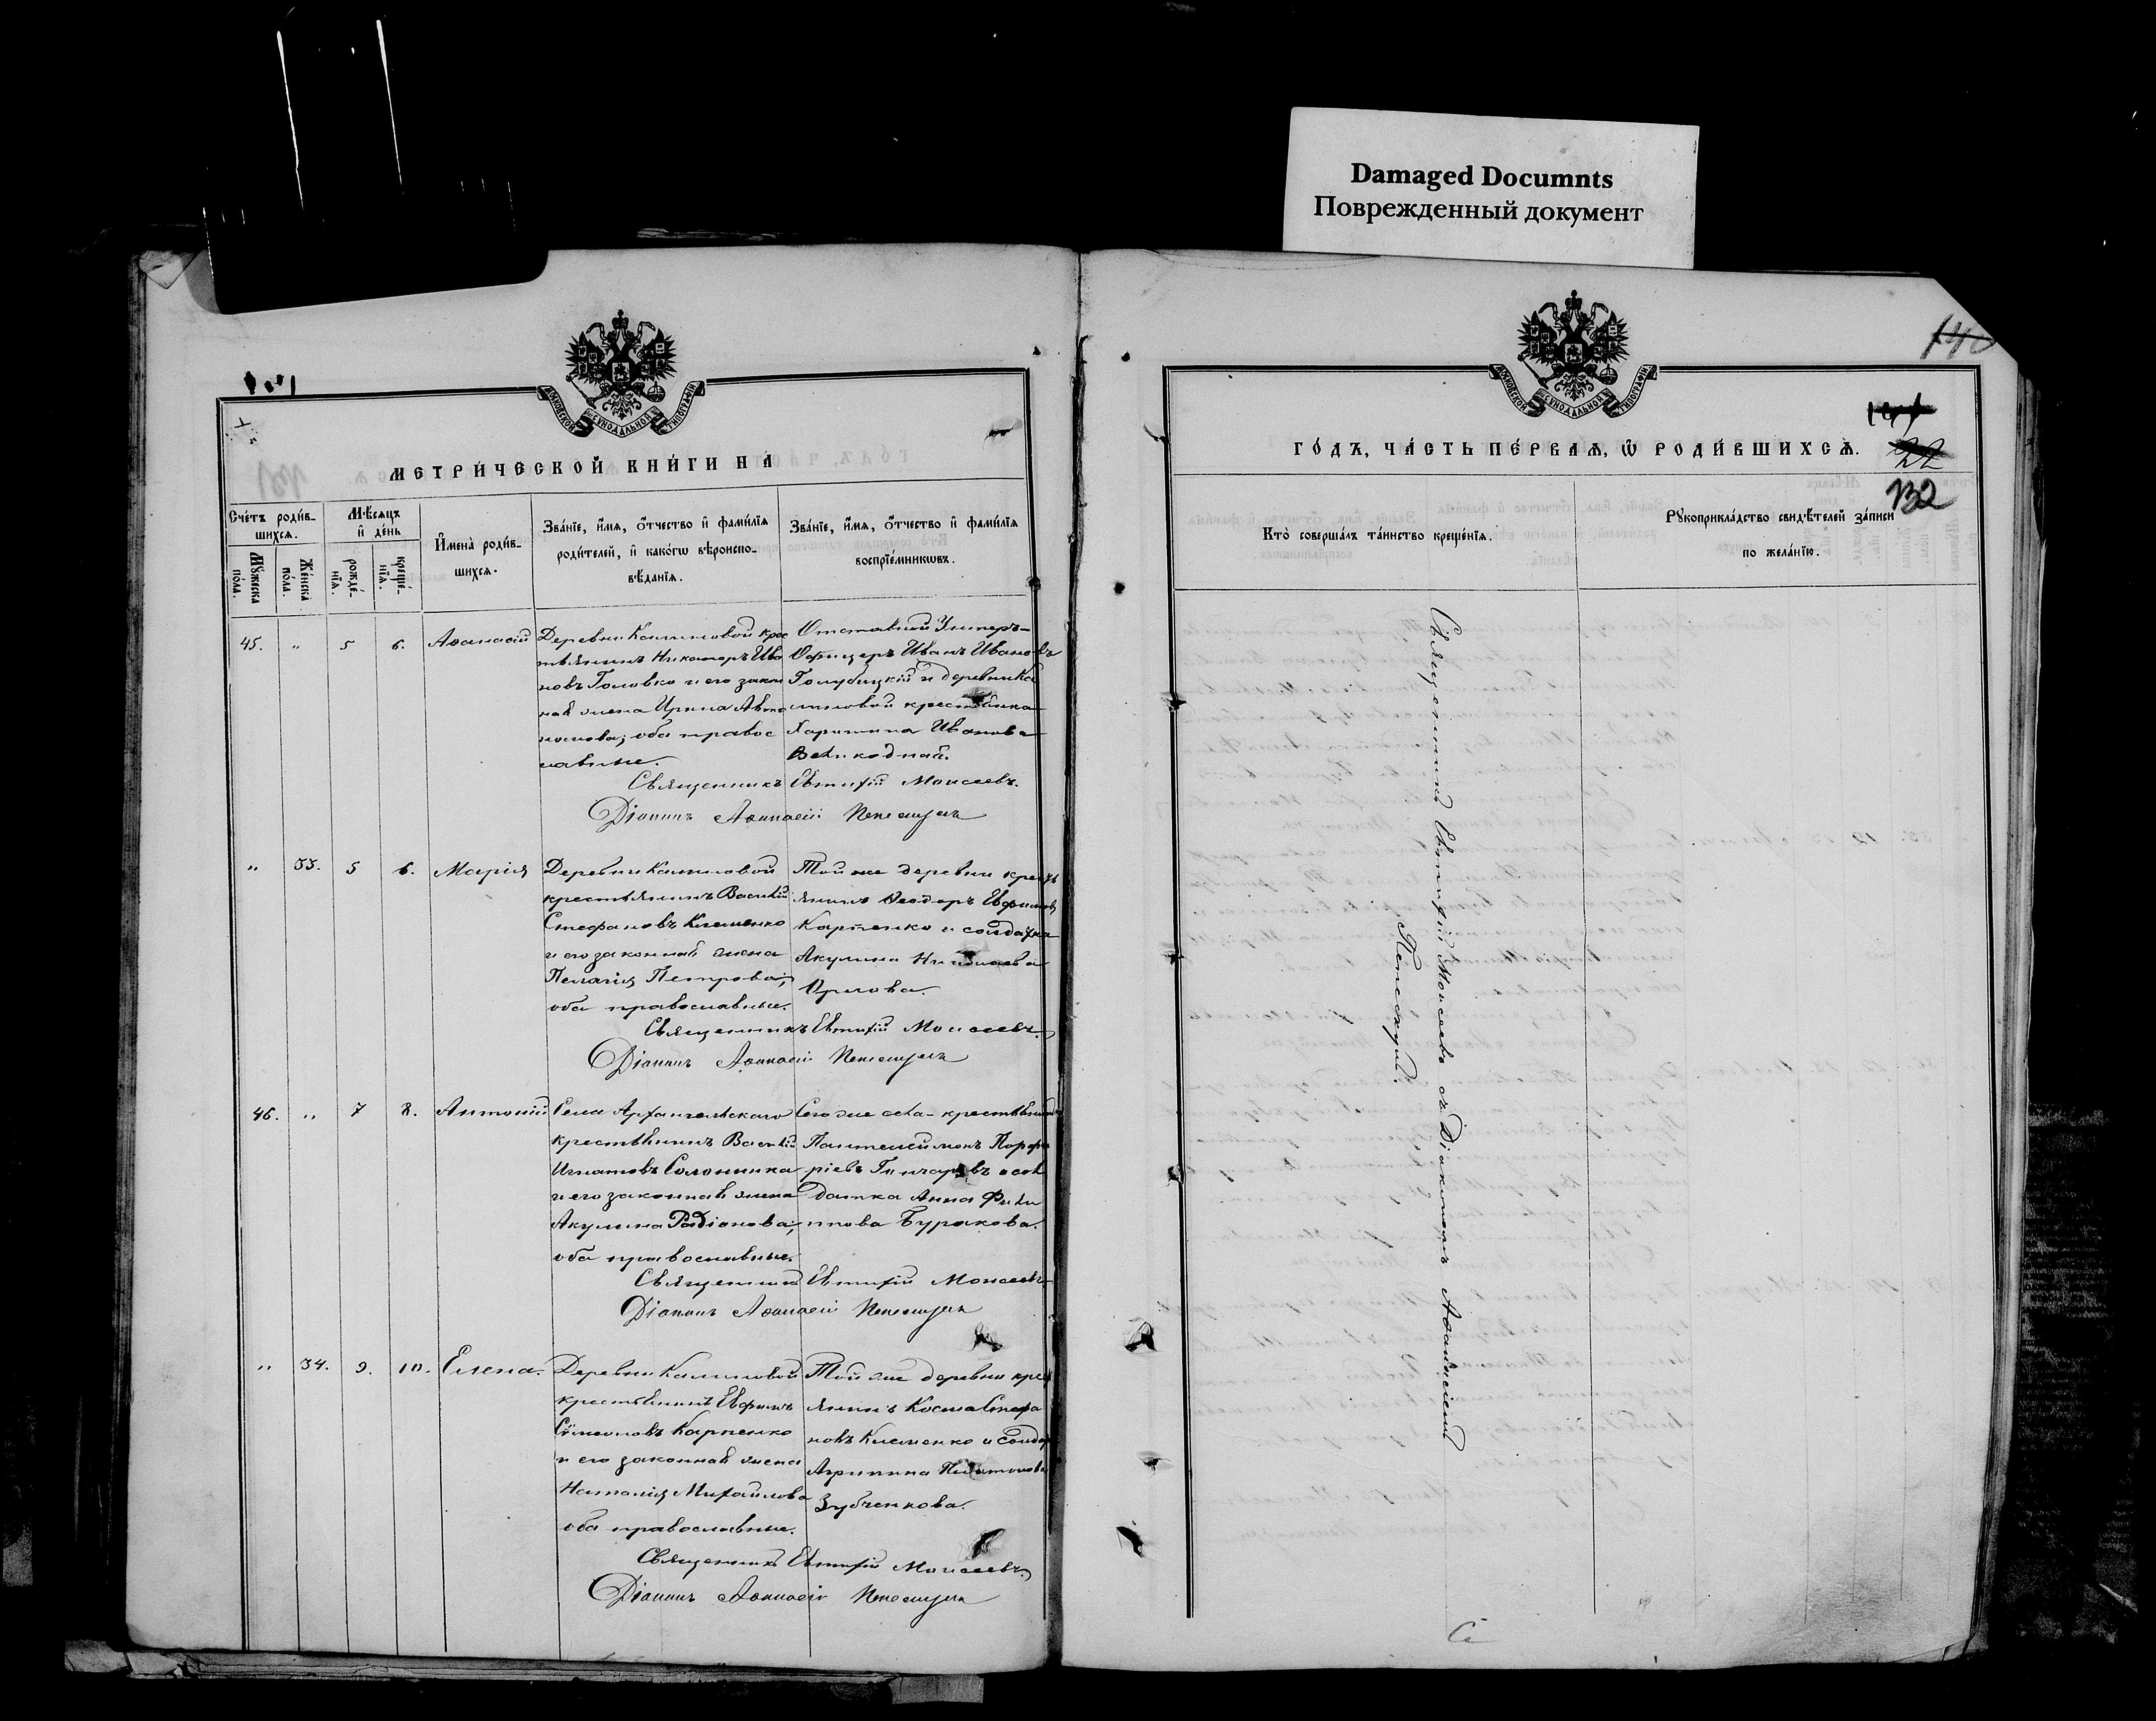 Damaged Documnts
Поврежденный документ
140
МОСКОВСКОЙ СѴНОДАЛЬНОЙ ТИПОГРАФІИ
МОСКОВСКОЙ СѴНОДАЛЬНОЙ ТИПОГРАФІИ
МЕТРИ́ЧЕСКОЙ КНИ́ГИ НА̀
Сче́тъ роди́в-
шихсѧ.
Мꙋ́жеска
по́ла.
Же́нска
пола.
Мѣ́сѧцъ
и҆ де́нь
рожде́-
нїѧ.
креще́-
нїѧ.
И҆мена̀ роди́в-
шихсѧ.
Зва́нїе, и҆́мѧ, ѻ҆́тчество и҆ фами́лїѧ
роди́телей, и҆ како́гѡ вѣроиспо-
вѣ́данїѧ.
Зва́нїе, и҆́мѧ, ѻ҆́тчество и҆ фами́лїѧ
воспрїе́мникѡвъ.
45. " 5 6. Аѳанасій
Деревни Калиновой крес
тьянинъ Никаноръ Ива
новъ Головко и его закон
ная жена Ирина Авто
номова; оба правос
лавные.
Отставной Унтеръ-
Офицеръ Иванъ Ивановъ
Голубицкій и деревни Ка
линовой крестьянка
Харитина Иванова
Великодная.
Священникъ Евтихій Моисеевъ.
Діаконъ Аѳанасій
" 33. 5 6. Марія
Деревни Калиновой
крестьянинъ Василій
Стефановъ Клименко
и его законная жена
Пелагія Петрова;
оба православные.
Той же деревни крестъ
янинъ Ѳеодоръ Ефимовъ
Карпенко и солдатка
Акулина Николаева
Орлова.
Священникъ Евтихій Моисеевъ.
Діаконъ Аѳанасій
46. " 7 8. Антоній
Села Архангельскаго
крестьянинъ Василій
Игнатовъ Солонинка
и его законная жена
Акулина Радіонова;
оба православные.
Сего же села крестьянинъ
Пантелеймонъ Порфи
ріевъ Гончаровъ и сол
датка Анна Фили
ппова Буракова.
Священникъ Евтихій Моисеевъ
Діаконъ Аѳанасій
" 34. 9. 10. Елена.
Деревни Калиновой
крестьянинъ Ефимъ
Симеоновъ Карпенко
и его законная жена
Наталія Михайлова
оба православные.
Той же деревни крест
янинъ Косма Стефа
новъ Клименко и солдат
Агрипина
Зубченкова.
Священникъ Евтихій Моисеевъ.
Діаконъ Аѳанасій
ГО́ДЪ, ЧА́СТЬ ПЕ́РВАѦ, Ѡ҆ РОДИ́ВШИХСѦ.
22
132
Кто̀ соверша́лъ та́инство креще́нїѧ.
Рꙋкоприкла́дство свидѣ́телей за́писи
по жела́нїю.
Священникъ Евтихій Моисеевъ съ Діакономъ Аѳанасіемъ